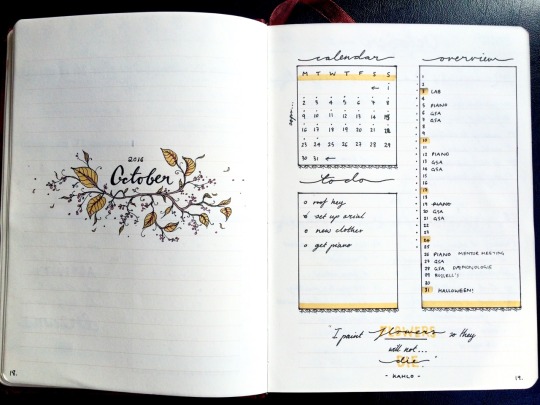 2016
October
18.
calendar
M T W T F S S
← 1
2 3 4 5 6 7 8
9 10 11 12 13 14 15
16 17 18 19 20 21 22
23 24 25 26 27 28 29
30 31 ←
to do
roof key
set up aerial
new clothes
get piano
overview
1
2
3 LAB
4
5 PIANO
6 GSA
7 GSA
8
9
10
11
12 PIANO
13 GSA
14 GSA
15
16
17
18
19 PIANO
20 GSA
21 GSA
22
23
24
25
26 PIANO MENTOR MEETING
27 GSA
28 GSA DÆMONOLOGIE
29 RUSSELL'S
30
31 HALLOWEEN!
"I paint flowers so they
FLOWERS
will not...
die"
DIE
- KAHLO -
19.